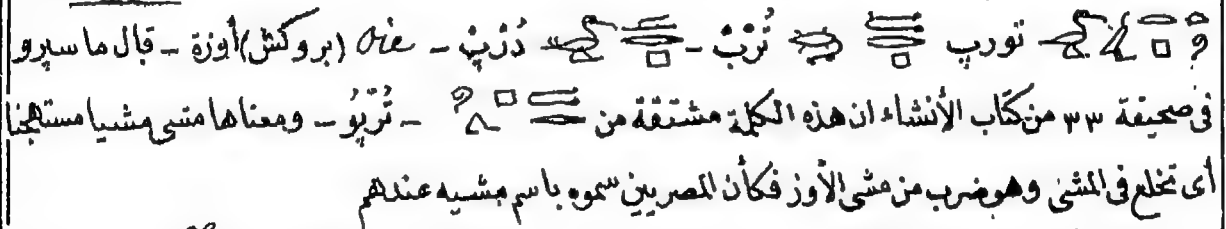 تورپ تُرْبْ - دُرْپْ - Oie (بروكش) أوزة - قال ماسپرو
فى صحيفة ٣٣ من كتاب الأنشاء ان هذه الكلمة مشتقة من - تُرْپُو - ومعناها مشى مشيا مستهجنا
أى تخلع فى المشى وهو ضرب من مشى الأوز فكأن المصريين سموه باسم مشيه عندهم